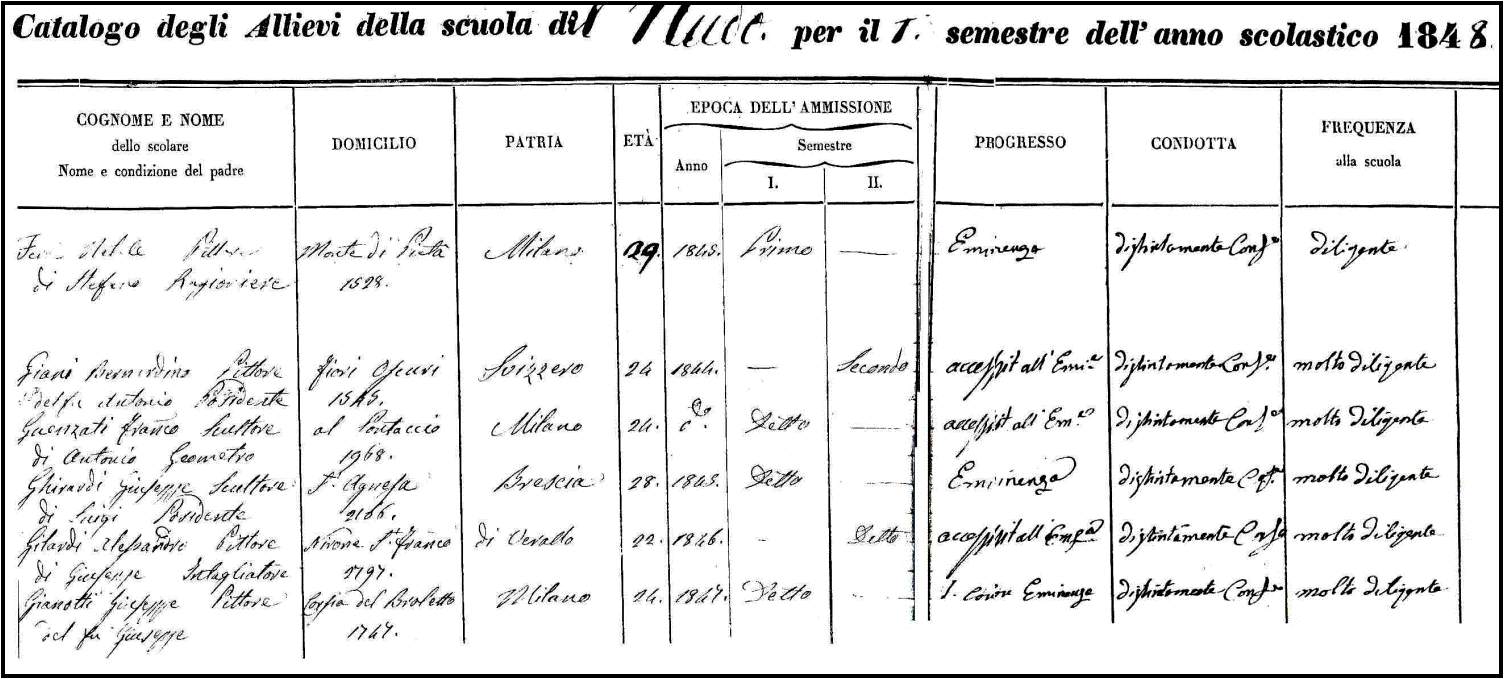 Catalogo degli Allievi della scuola del Nudo. per il I. semestre dell' anno scolastico 1848.
COGNOME E NOME
dello scolare
Nome e condizione del padre
DOMICILIO
PATRIA
ETÀ
EPOCA DELL' AMMISSIONE
Anno
Semestre
I.
II.
PROGRESSO
CONDOTTA
FREQUENZA
alla scuola
Pittore Monte di Pietà Milano 29. 1845. Primo — Eminenza distintamente Conf.e diligente
di Stefano Ragioniere 1528.
Giani Bernardino Pittore Fiori Oscuri Svizzero 24 1844. — Secondo accessit all' Emi.a distintamente Conf.e molto diligente
del fu Antonio Possidente 1545.
Guenzati Franco Scultore al Pontaccio Milano 24. do. Detto — accessit all' Em.a distintamente Conf.e molto diligente
di Antonio Geometro 1968.
Ghirardi Giuseppe Scultore S. Agnesa Brescia 28. 1845. Detto — Eminenza distintamente Conf.e molto diligente
di Luigi Possidente 2166.
Gilardi Alessandro Pittore Nirone S. Franco di Verallo 22. 1846. - Detto accessit all' distintamente molto diligente
di Giuseppe Intagliatore 2797.
Gianotti Giuseppe Pittore Corsia del Broletto Milano 24. 1847. Detto — I. Eminenza distintamente Conf.e molto diligente
del fu Giuseppe 1747.